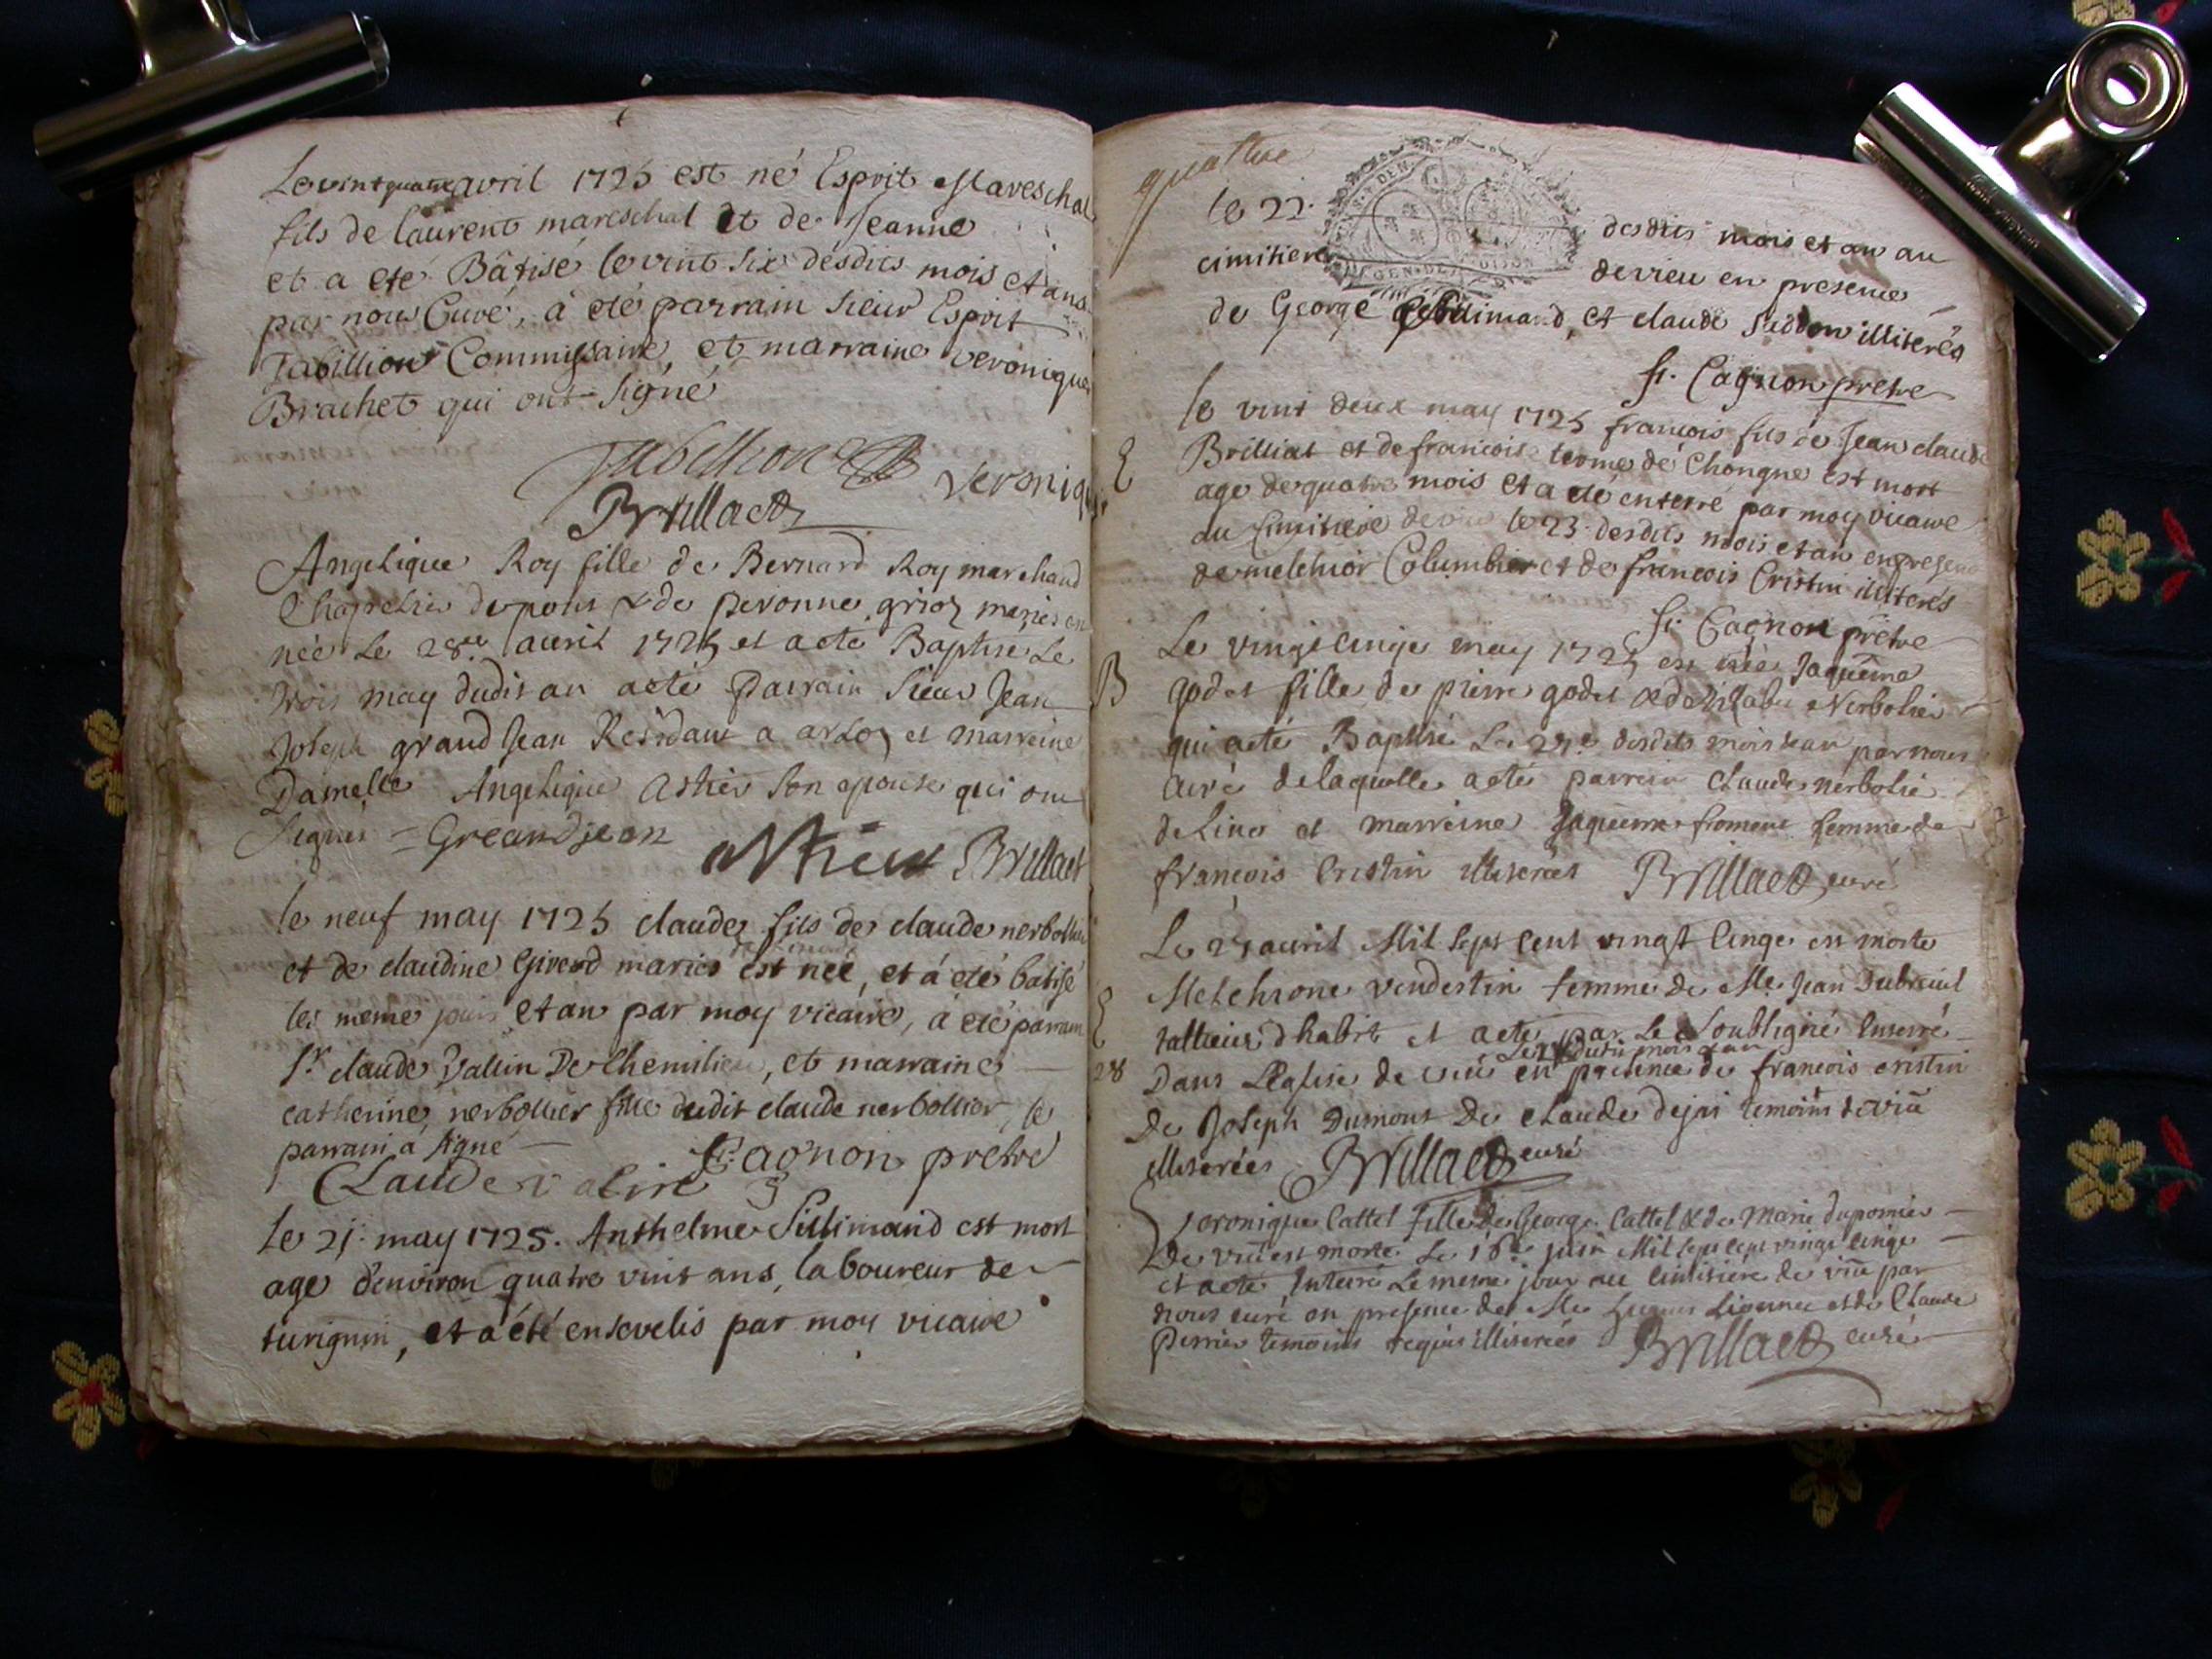 Le vint quatre avril 1725 est né Esprit Mareschal
fils de laurent mareschal et de Jeanne
et a eté Bâtisé le vint six desdits mois et ans
par nous Curé, à eté parrain sieur Esprit
Tabillion Commissaire, et marraine veronique
Brachet qui ont signé
Tabellion Veronique
Brillaet
Angelique Roy fille de Bernard Roy marchand
de peronne maries
née Le 28e avril 1725 et a eté Baptisé Le
trois may dudit an a eté Parrain sieur Jean
Joseph grand Jean Residant a et marreine
Damelle Angelique Astier son epouse qui ont
signés = Greandjean
Astier Brillaet
le neuf may 1725 claude fils de claude nerbollier
et de claudine Giverd mariés est née, et à eté batisé
les meme jour et an par moy vicaire, à eté parrain
Sr. claude Vallin De Chemilieu, et marraine
catherine nerbollier fille dudit claude nerbollier, le
parrain a signé
fr. Cagnon pretre
Claude valin
Le 21. may 1725. Anthelme Sillimand est mort
age d'environ quatre vint ans, laboureur de
turignin, et a été ensevelis par moy vicaire
quattre
le 22. desdits mois et an au
cimitiere de vieu en presence
de George Sillimand, et claude illiterés
fr. Cagnon pretre
le vint deux may 1725 francois fils de Jean claude
E
Brilliat et de francoise terme de Chongne est mort
age de quatre mois et a eté enterré par moy vicaire
au Cimitiere de vieu le 23. desdits mois et an en presence
de melchior Columbier et de francois Cristin illiterés
fr. Cagnon prêtre
Le vingt cinqe may 1725 est née Jaqueme
B
godet fille de pierre godet & d'Izabu Nerbolier
qui a eté Baptisé Le desdits mois & an par nous
Curé de laquelle a eté parrein Claude nerbolié
de Lino et marreine Jaqueme froment femme de
francois Cristin illiterées Brillaet curé
Le avril Mil sept cent vingt cinqe est morte
Melchione vendestin femme de Me. Jean Dubreuil
E
tallieur d'habit et a eté par Le soubsigné Enterré
Le dudit mois & an
28
Dans L'Eglise de vieu en presence de francois cristin
de Joseph Dumont de Claude dejai temoins de vieu
illiterées Brillaet curé
Veronique Cattel fille de George Cattel & de Marie dupomier
De vieu est morte Le 16e juin Mil sept cent vingt cinqe
et a eté Enterré Le mesme jour au Cimitiere de vieu par
nous curé en presence de Me. et de Claude
Perrier temoins requis illiterées Brillaet curé